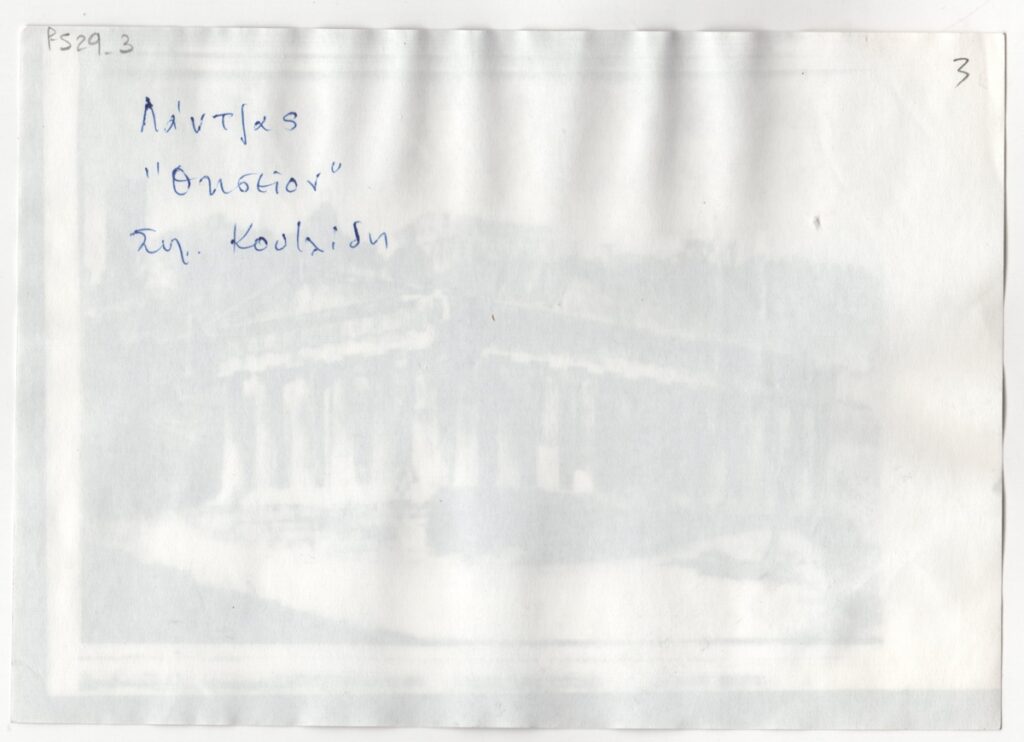 FS29_3
3
Λάντζας
"Θησείον"
Συλ. Κουλίδη